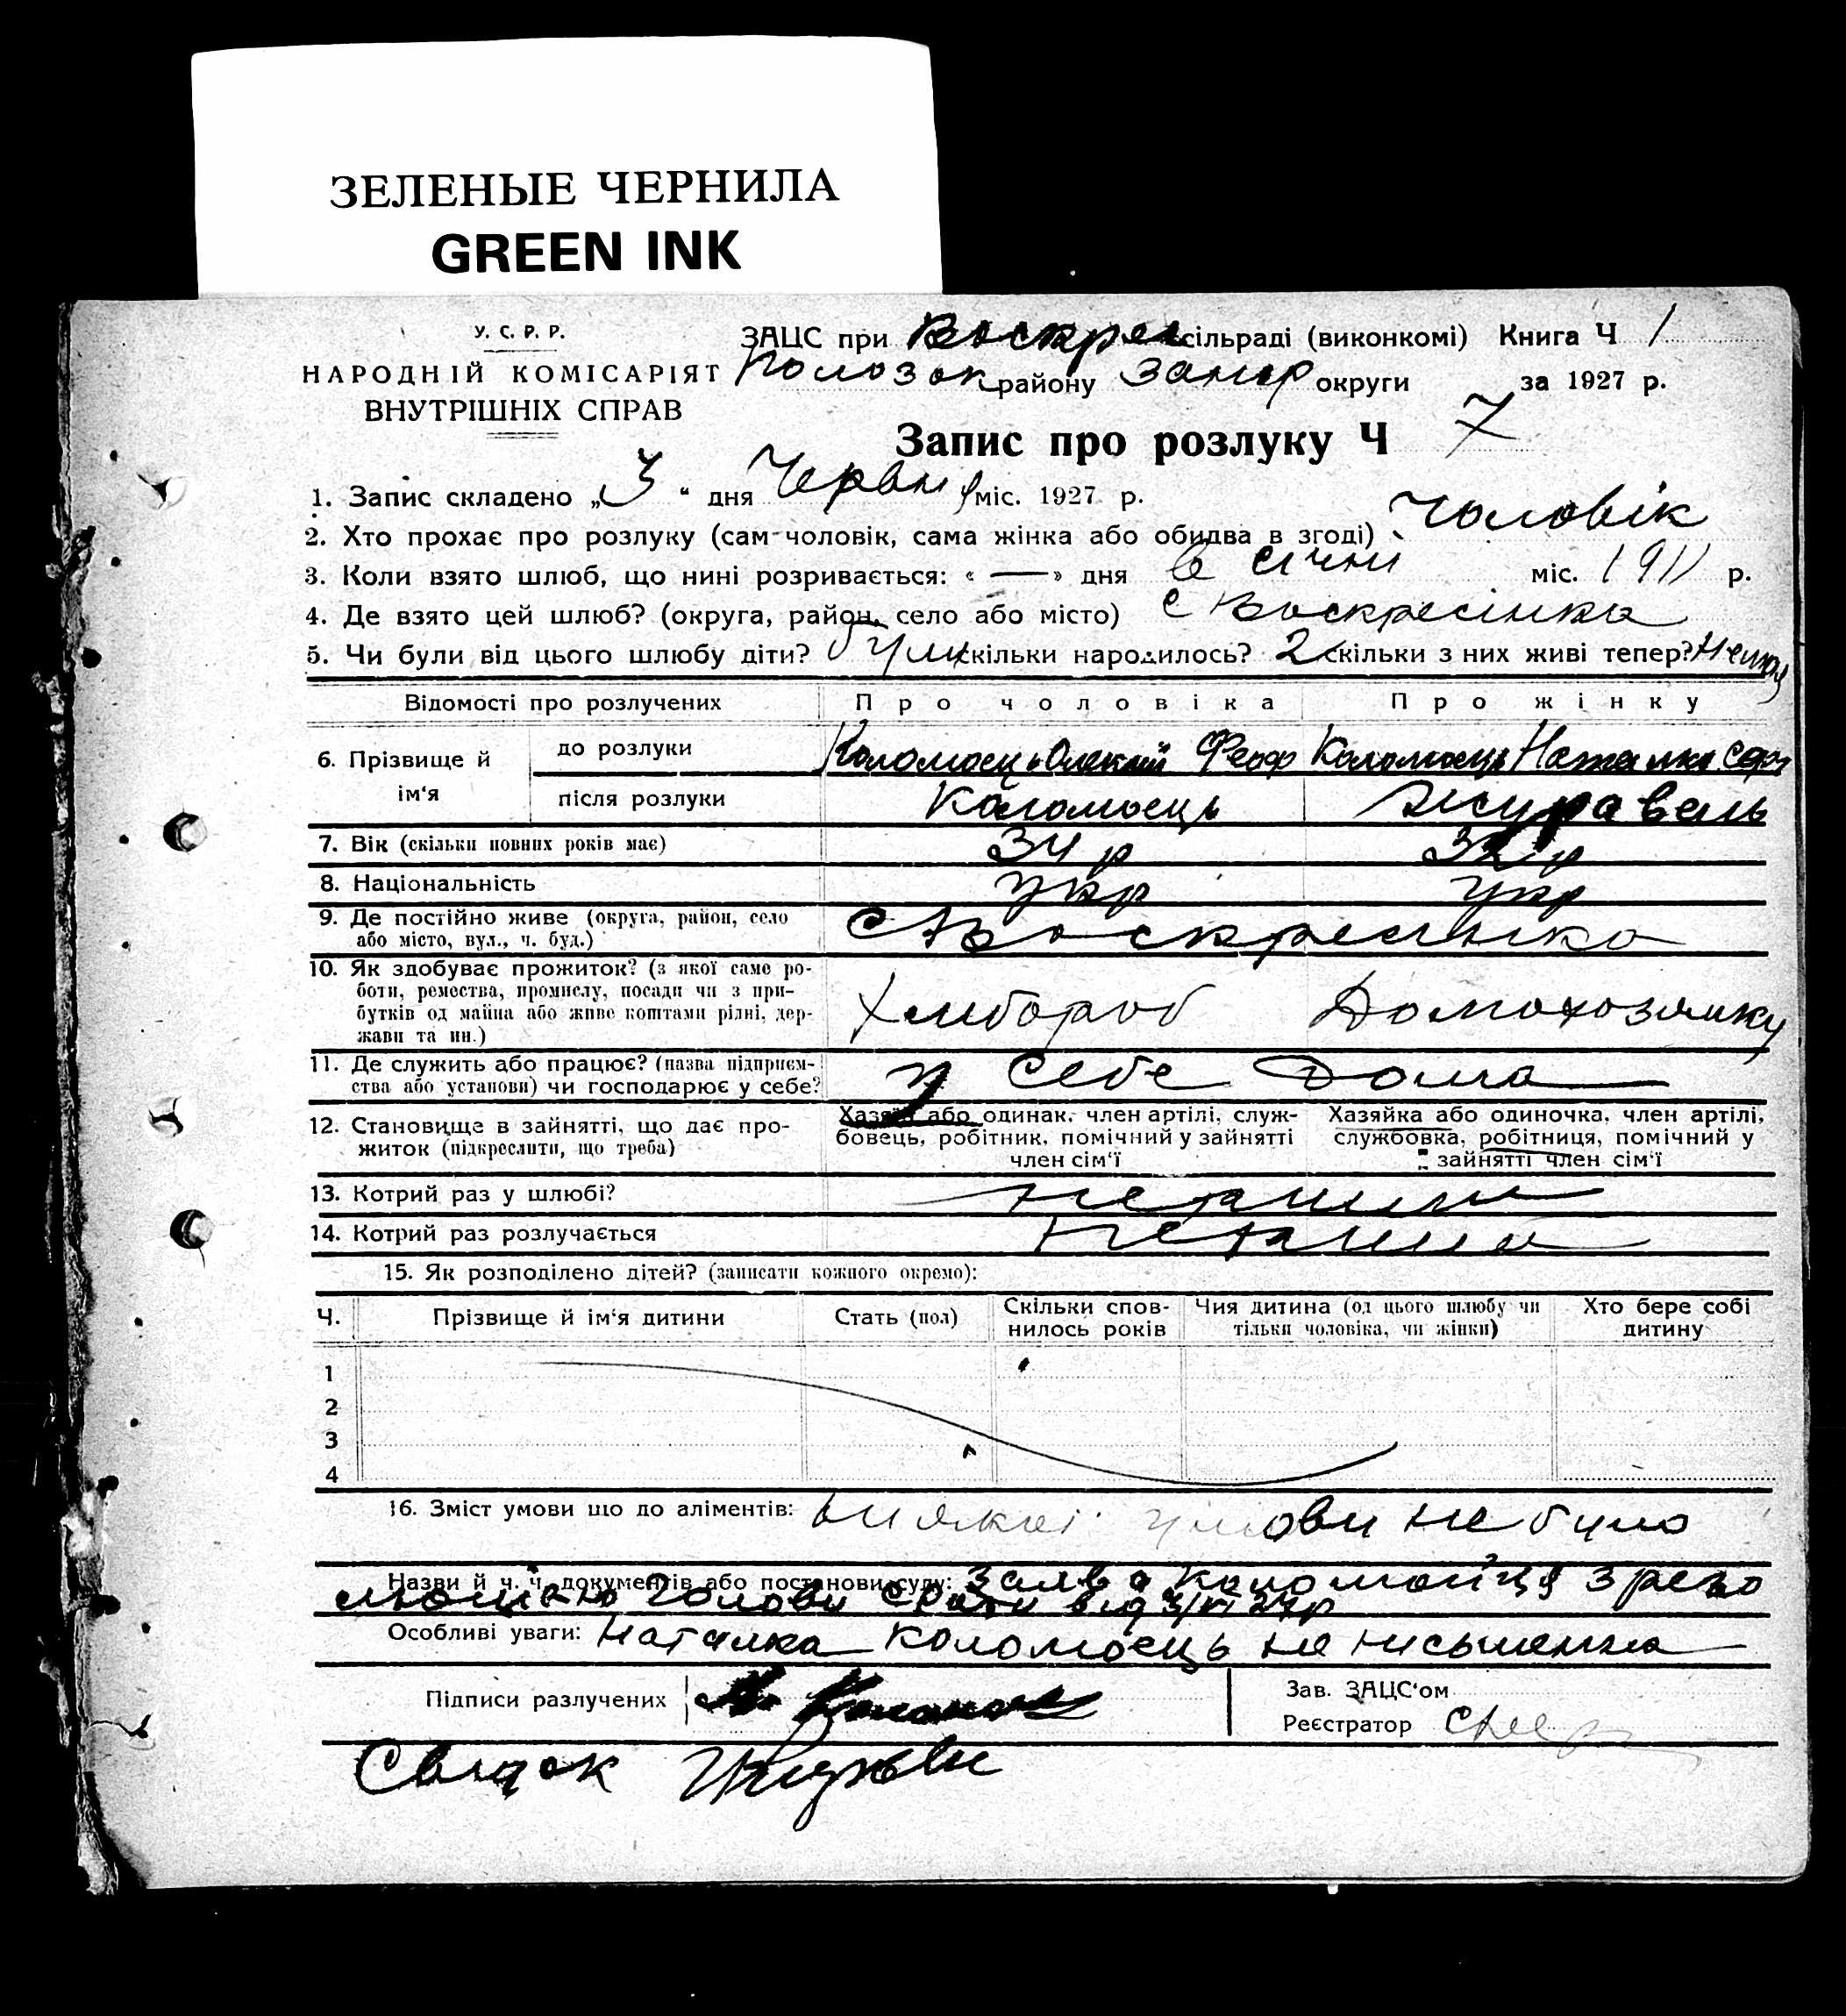 ЗЕЛЕНЫЕ ЧЕРНИЛА
GREEN INK
У. С. Р. Р.
НАРОДНІЙ КОМІСАРІЯТ
ВНУТРІШНІХ СПРАВ
ЗАЦС при Воскрес сільраді (виконкомі) Книга Ч 1
Пологок району Запор округи за 1927 р.
Запис про розлуку Ч 7
1. Запис складено „3“ дня Червня міс. 1927 р.
2. Хто прохає про розлуку (сам чоловік, сама жінка або обидва в згоді) Чоловік
3. Коли взято шлюб, що нині розривається: « — » дня в січні міс. 1911 р.
4. Де взято цей шлюб? (округа, район, село або місто) с Воскресінка
5. Чи були від цього шлюбу діти? були скільки народилось? 2 скільки з них живі тепер? Немає
Відомості про розлучених Про чоловіка Про жінку
6. Прізвище й ім‘я
до розлуки Коломоєць Олексій Феоф Коломоєць Наталка
після розлуки Коломоєць Журавель
7. Вік (скільки повних років має) 34 р 32 р
8. Національність Укр Укр
9. Де постійно живе (округа, район, село
або місто, вул., ч. буд.) с Воскресінка
10. Як здобуває прожиток? (з якої саме ро-
боти, ремества, промислу, посади чи з при-
бутків од майна або живе коштами рідні, дер-
жави та ин.) Хлибороб Домохозяйка
11. Де служить або працює? (назва підприєм-
ства або установи) чи господарює у себе? у себе Дома
12. Становище в зайнятті, що дає про-
житок (підкреслити, що треба)
Хазяїн або одинак, член артілі, служ-
бовець, робітник, помічний у зайнятті
член сім‘ї
Хазяйка або одиночка, член артілі,
службовка, робітниця, помічний у
зайнятті член сім‘ї
13. Котрий раз у шлюбі?
14. Котрий раз розлучається
15. Як розподілено дітей? (записати кожного окремо):
Ч. Прізвище й ім‘я дитини Стать (пол) Скільки спов-
нилось років Чия дитина (од цього шлюбу чи
тільки чоловіка, чи жінки) Хто бере собі
дитину
1
2
3
4
16. Зміст умови що до аліментів: ниякої умови не було
Назви й ч. ч. документів або постанови суду: Заява Коломойця з резо
люцією Голови с ради від 3/VI 27р
Особливі уваги: Наталка Коломоєць не письменна
Підписи разлучених
Зав. ЗАЦС‘ом
Реєстратор
Свидок